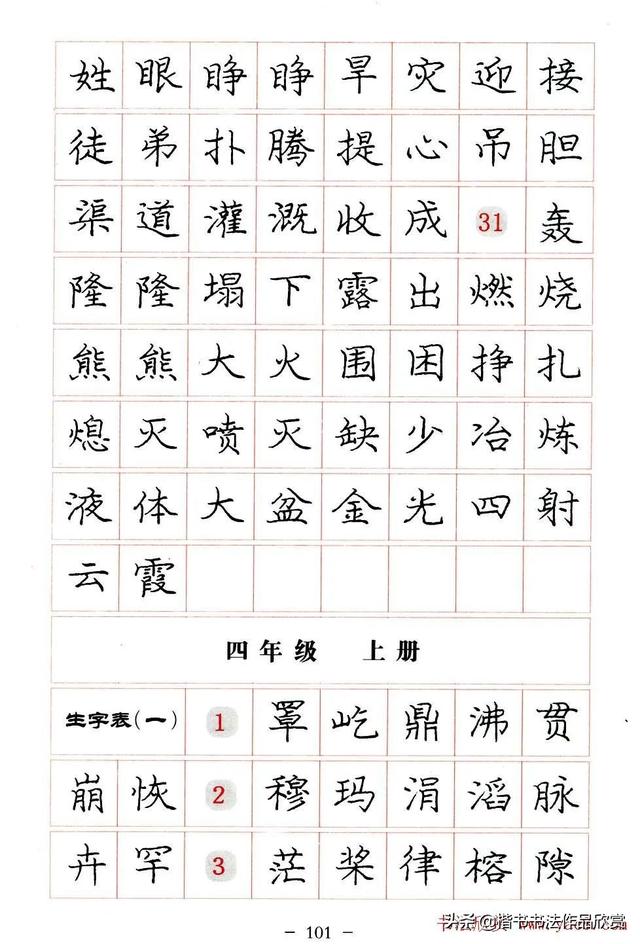 姓眼睁睁旱灾迎接
徒弟扑腾提心吊胆
渠道灌溉收成31轰
隆隆塌下露出燃烧
熊熊大火围困挣扎
熄灭喷灭缺少冶炼
液体大盆金光四射
云霞
四年级 上册
生字表(一) 1 罩屹鼎沸贯
崩恢 2 穆玛涓滔脉
卉罕 3 茫桨律榕隙
- 101 -
头条@楷书书法作品欣赏